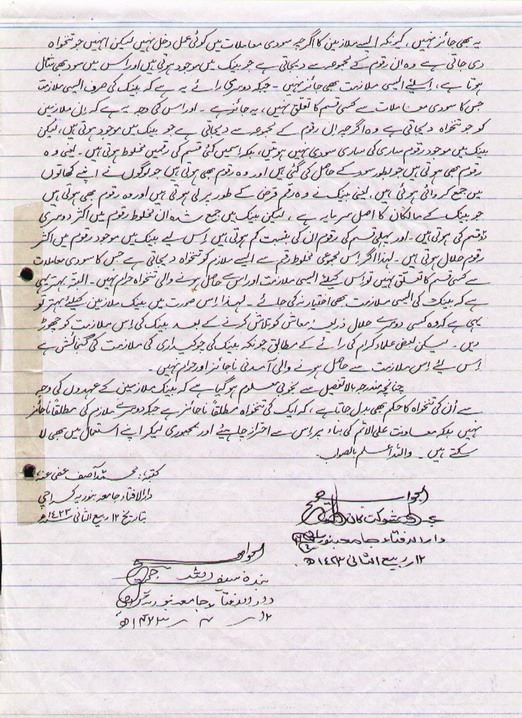 یہ بھی جائز نہیں، کیونکہ ایسے ملازمین کا اگرچہ سودی معاملات میں کوئی عمل دخل نہیں لیکن انہیں جو تنخواہ
دی جاتی ہے وہ ان رقوم کے مجموعہ سے دیجاتی ہے جو بینک میں موجود ہوتی ہیں اور اس میں سود بھی شامل
ہوتا ہے، اسلئے ایسی ملازمت بھی جائز نہیں۔ جبکہ دوسری رائے یہ ہے کہ بینک کی صرف ایسی ملازمت
جس کا سودی معاملات سے کسی قسم کا تعلق نہیں، یہ جائز ہے۔ اور اس کی وجہ یہ ہے کہ ان ملازمین
کو جو تنخواہ دیجاتی ہے وہ اگرچہ ان رقوم کے مجموعہ سے دیجاتی ہے جو بینک میں موجود ہوتی ہیں، لیکن
بینک میں موجود رقوم ساری کی ساری سودی نہیں ہوتیں، بلکہ اسمیں کئی قسم کی رقمیں مخلوط ہوتی ہیں۔ یعنی وہ
رقوم بھی ہوتی ہیں جو بطور سود کے حاصل کی گئی ہیں اور وہ رقوم بھی ہوتی ہیں جو لوگوں نے اپنے کھاتوں
میں جمع کروائی ہوئی ہیں، یعنی بینک نے وہ رقم قرض کے طور پر لی ہوتی ہیں اور وہ رقوم بھی ہوتی ہیں
جو بینک کے مالکان کا اصل سرمایہ ہے، لیکن بینک میں جمع شدہ ان مخلوط رقوم میں اکثر دوسری
قسم کی ہوتی ہیں۔ اور پہلی قسم کی رقوم ان کی بنسبت کم ہوتی ہیں۔ اس لیے بینک میں موجود رقوم میں اکثر
رقوم حلال ہوتی ہیں۔ لہذا اگر اس مجموعی مخلوط رقم سے ایسے ملازم کو تنخواہ دیجاتی ہے جس کا سودی معاملات
سے کسی قسم کا تعلق نہیں تو اس کیلئے ایسی ملازمت اور اس سے حاصل ہونے والی تنخواہ حرام نہیں۔ البتہ بہتر یہی
ہے کہ بینک کی ایسی ملازمت بھی اختیار نہ کی جائے۔ لہذا اس صورت میں بینک ملازمین کیلئے بہتر تو
یہی ہے کہ وہ کسی دوسرے حلال ذریعہ معاش کو تلاش کرنے کے بعد بینک کی اس ملازمت کو چھوڑ
دیں۔ لیکن بعض علماء کرام کی رائے کے مطابق چونکہ بینک کی چوکیداری کی ملازمت کی گنجائش ہے
اس لئے اس ملازمت سے حاصل ہونے والی آمدنی ناجائز اور حرام نہیں۔
چنانچہ مندرجہ بالا تفصیل سے بخوبی معلوم ہوگیا ہے کہ بینک ملازمین کے عہدوں کی وجہ
سے ان کی تنخواہ کا حکم بھی بدل جاتا ہے، کہ ایک کی تنخواہ مطلقاً ناجائز ہے جبکہ دوسرے ملازم کی مطلقاً ناجائز
نہیں بلکہ معاونت علی الاثم کی بناء پر اس سے احتراز چاہیئے اور مجبوری لیکر اپنے استعمال میں بھی لا
سکتے ہیں۔ واللہ اعلم بالصواب
کتبہ: محمد آصف عفی عنہ
دارالافتاء جامعہ بنوریہ کراچی
بتاریخ ۱۲ ربیع الثانی ۱۴۲۳ھ
الجواب صحیح
شوکت
دارالافتاء جامعہ بنوریہ
۱۲ ربیع الثانی ۱۴۲۳ھ
الجواب صحیح
بندہ سیف
دارالافتاء جامعہ بنوریہ
۱۲ / ۴ / ۱۴۲۳ھ